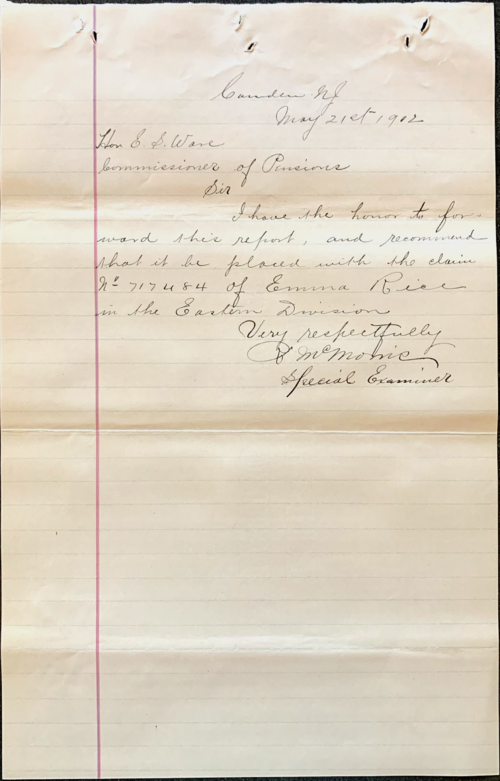 Camden NJ
May 21st, 1902
Hon E. S. Ware
Commissioner of Pensions
Sir
I have the honor to for-
ward this report, and recommend
that it be placed with the claim
No 717484 of Emma Rice
in the Eastern Division
Very respectfully
McMorris
Special Examiner